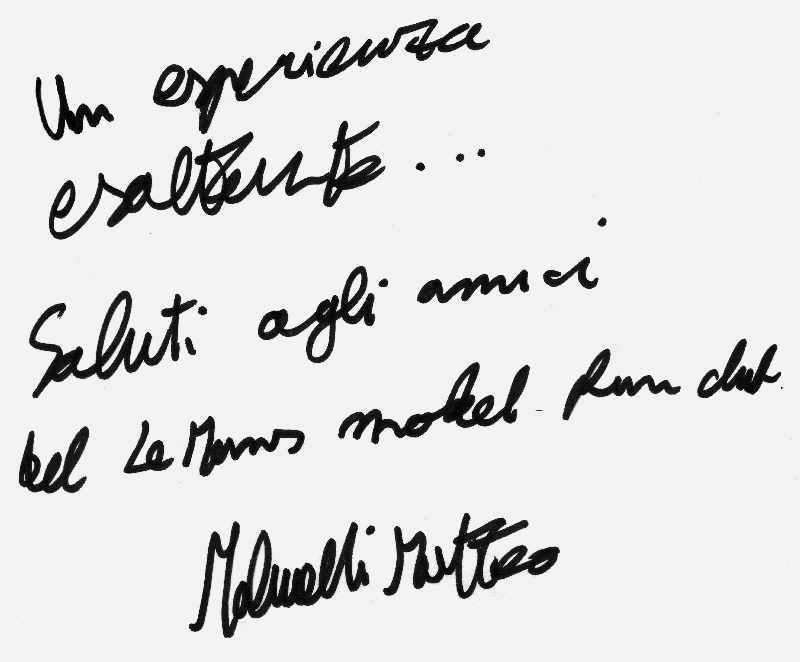 Un esperienza
esaltante...
Saluti agli amici
del Le Mans model fun club
Matteo